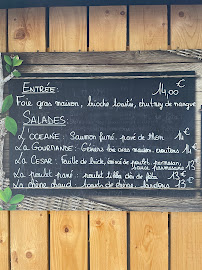 ENTRÉE: 14,00€
Foie gras maison, brioche toastée, chutney de mangue
SALADES:
L'OCEANE: Saumon fumé, pavé de thon 14€
La GOURMANDE: Gésiers, foie gras maison, croutons 14€
La CESAR: Feuille de brick, émincé de poulet, parmesan,
sauce parmesane 13€
La poulet pané: poulet, dés de feta 13€
La chèvre chaud: toasts de chèvre, lardons 13€